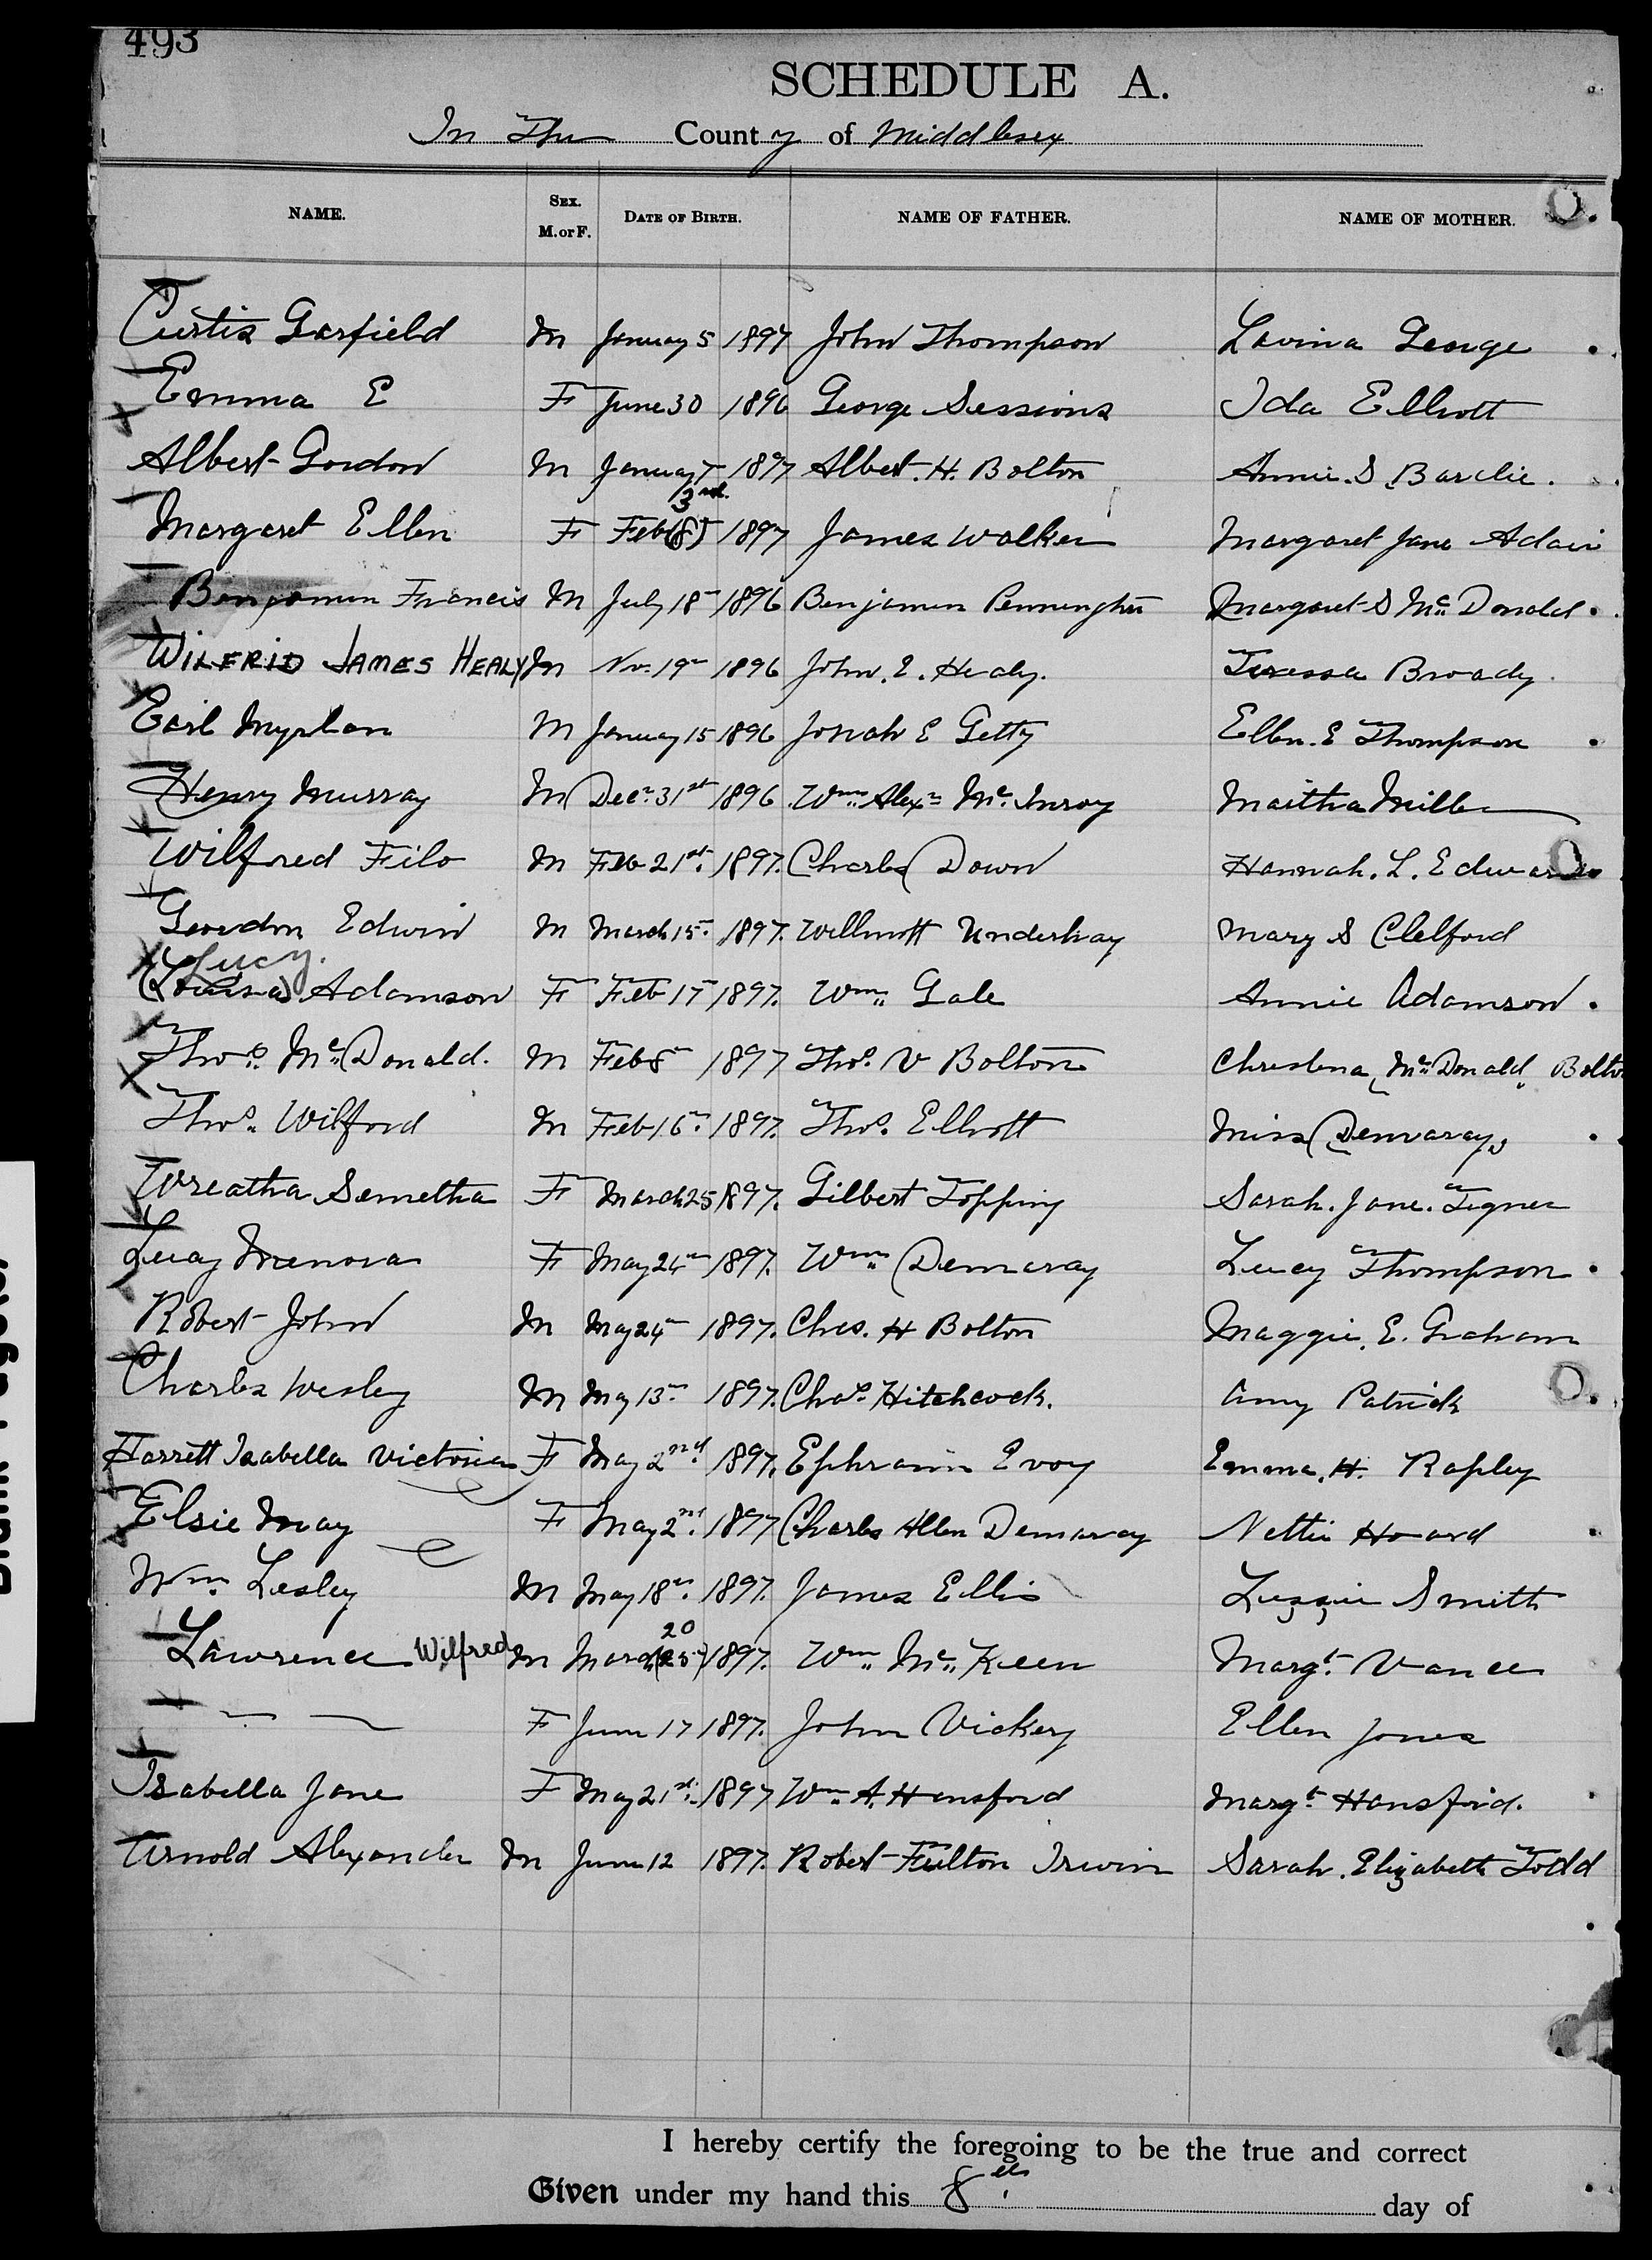 493
SCHEDULE A.
In The County of Middlesex
NAME. SEX. M. or F. DATE OF BIRTH. NAME OF FATHER. NAME OF MOTHER.
Curtis Garfield M January 5 1897 John Thompson Lavina George
Emma E F June 30 1896 George Sessions Ida Elliott
Albert Gordon M January 7 1897 Albert. H. Bolton Annie. S.
3rd
Margaret Ellen F Feb (8) 1897 James Walker Margaret Jane Adair
Benjamin Francis M July 18 1896 Benjamin Pennington Margaret S Mc Donald
WILFRID JAMES HEALY M Nov. 19 1896 John. E. Healy. Teressa Broady
Earl M January 15 1896 Jonah E Getty Ellen. E Thompson
Henry Murray M Dec. 31st 1896 Wm Alex Mc Inroy Martha Miller
Wilfred Filo M Feb 21st 1897. Charles Down Hannah. L. Edwards
Gordon Edwin M March 15 1897. Willmott Underhay Mary S Clelford
Lucy.
(Louisa) Adamson F Feb 17 1897. Wm Gale Annie Adamson
Thos. Mc Donald. M Feb 8 1897 Thos. V Bolton Christena Mc Donald Bolton
Thos. Wilford M Feb 16 1897. Thos. Elliott Miss Demaray
Wreatha Semetha F March 25 1897. Gilbert Topping Sarah. Jane. Tigner
Lucy Menova F May 24 1897. Wm Demaray Lucy Thompson
Robert John M May 24 1897. Chas. H Bolton Maggie. E. Graham
Charles Wesley M May 13 1897. Chas. Hitchcock. Amy Patrick
Harrett Isabella Victoria F May 2nd 1897. Ephraim Evoy Emma. H. Rapley
Elsie May F May 2nd 1897 Charles Allen Demaray Nettie Howard
Wm. Lesley M May 18 1897. James Ellis Lizzie Smith
20
Lawrence Wilfred M March (25) 1897. Wm Mc Keen Margt Vance
— — F June 17 1897. John Vickery Ellen Jones
Isabella Jane F May 21st 1897 Wm A. Hansford Margt Hansford.
Arnold Alexander M June 12 1897. Robert Fulton Irwin Sarah. Elizabeth Todd
I hereby certify the foregoing to be the true and correct
Given under my hand this 8th day of